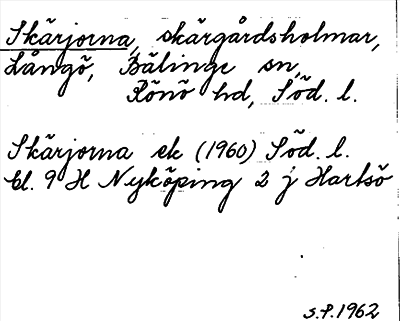 Skärjorna, skärgårdsholmar,
Långö, Bälinge sn,
Rönö hd, Söd. l.
Skärjorna ek (1960) Söd. l.
bl. 9 H Nyköping 2 j Hartsö
S.P. 1962